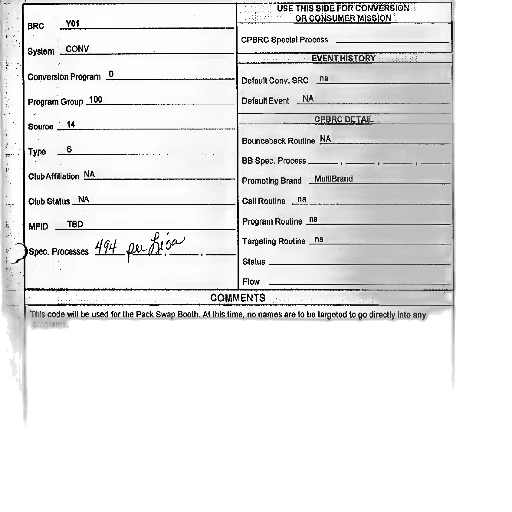 BRC Y01
System CONV
Conversion Program 0
Program Group 100
Source 14
Type 6
Club Affiliation NA
Club Status NA
MPID TBD
Spec. Processes 494 per Lisa
USE THIS SIDE FOR CONVERSION
OR CONSUMER MISSION
CPBRC Special Process
EVENT HISTORY
Default Conv. SRC na
Default Event NA
CPBRC DETAIL
Bounceback Routine NA
BB Spec. Process
Promoting Brand MultiBrand
Call Routine na
Program Routine na
Targeting Routine na
Status
Flow
COMMENTS
This code will be used for the Pack Swap Booth. At this time, no names are to be targeted to go directly into any
programs.